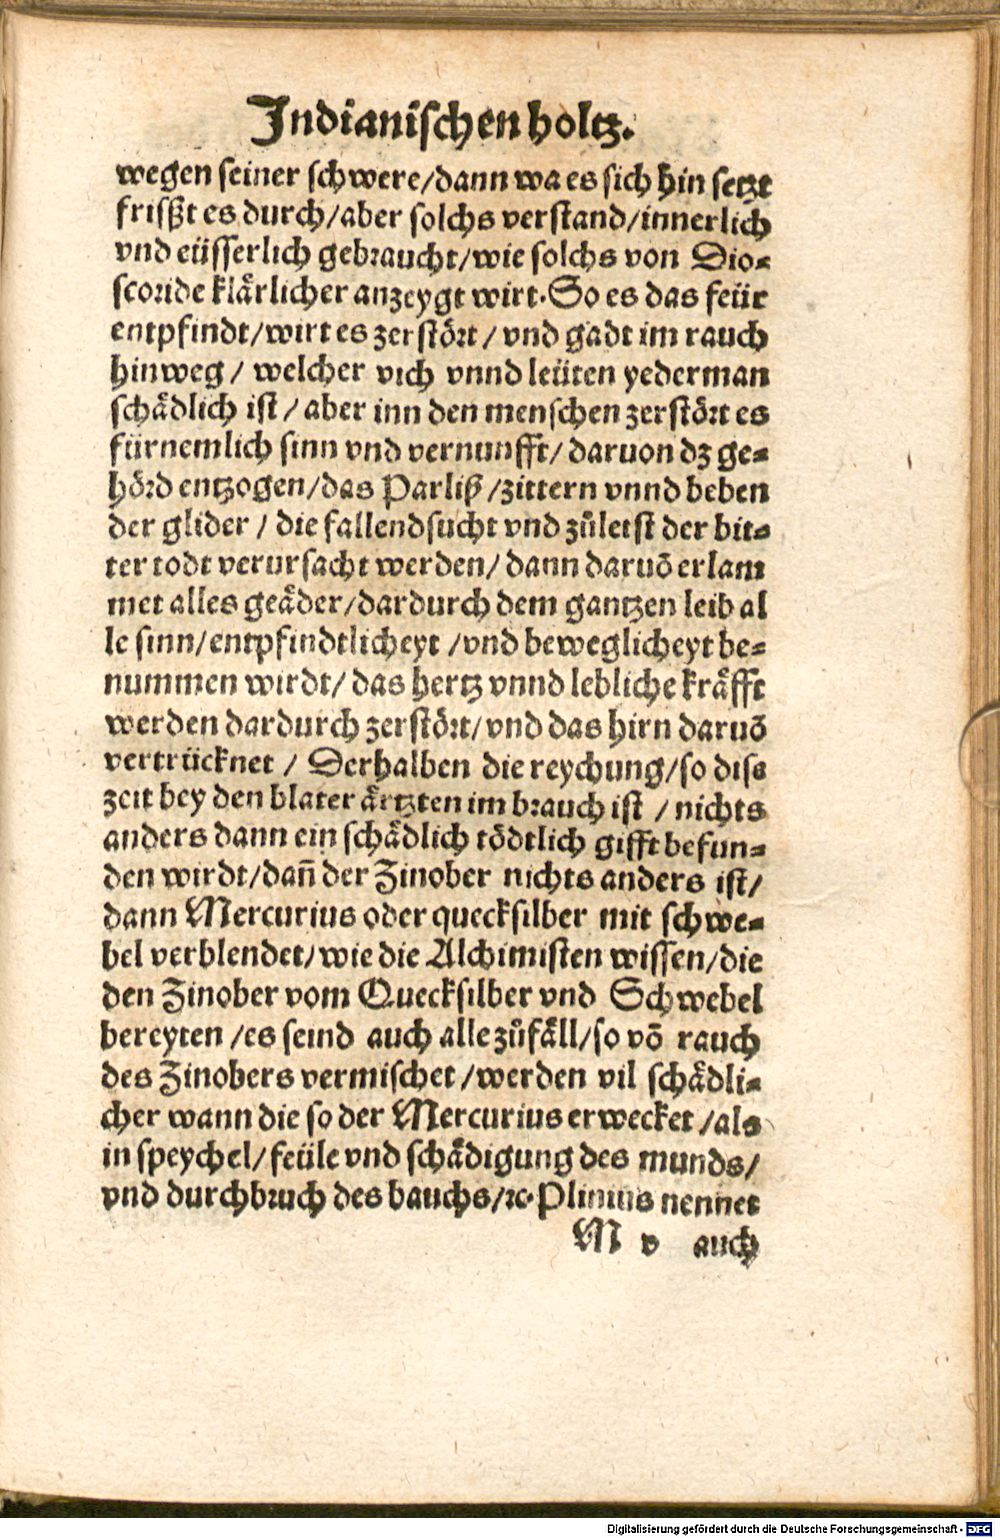 Jndianischen holtz.
wegen seiner schwere/dann wa es sich hin setzt
frißt es durch/aber solchs verstand/innerlich
vnd eüsserlich gebraucht/wie solchs von Dio⸗
scoride klärlicher anzeygt wirt. So es das feür
entpfindt/wirt es zerstört/ vnd gadt im rauch
hinweg/ welcher vich vnnd leüten yederman
schädlich ist/ aber inn den menschen zerstört es
fürnemlich sinn vnd vernunfft/ daruon dz ge⸗
hörd entzogen/das Parliß/zittern vnnd beben
der glider/ die fallendsucht vnd zůletst der bit⸗
ter todt verursacht werden/ dann daruõ erlam
met alles geäder/dardurch dem gantzen leib al
le sinn/entpfindtlicheyt/vnd beweglicheyt be⸗
nummen wirdt/ das hertz vnnd lebliche kräfft
werden dardurch zerstört/vnd das hirn daruõ
vertrücknet/ Derhalben die reychung/so dise
zeit bey den blater ärtzten im brauch ist/ nichts
anders dann ein schädlich tödtlich gifft befun⸗
den wirdt/dañ der Zinober nichts anders ist/
dann Mercurius oder quecksilber mit schwe⸗
bel verblendet/wie die Alchimisten wissen/die
den Zinober vom Quecksilber vnd Schwebel
bereyten/es seind auch alle zůfäll/so võ rauch
des Zinobers vermischet/werden vil schädli⸗
cher wann die so der Mercurius erwecket/als
in speychel/feüle vnd schädigung des munds/
vnd durchbruch des bauchs/ꝛc. Plinius nennet
M v auch
Digitalisierung gefördert durch die Deutsche Forschungsgemeinschaft - DFG